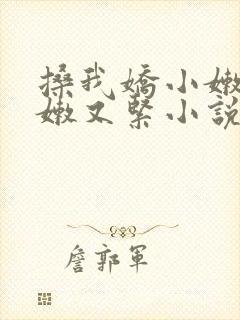 搡我嬌小嫩
嫩又緊小說
詹郭軍